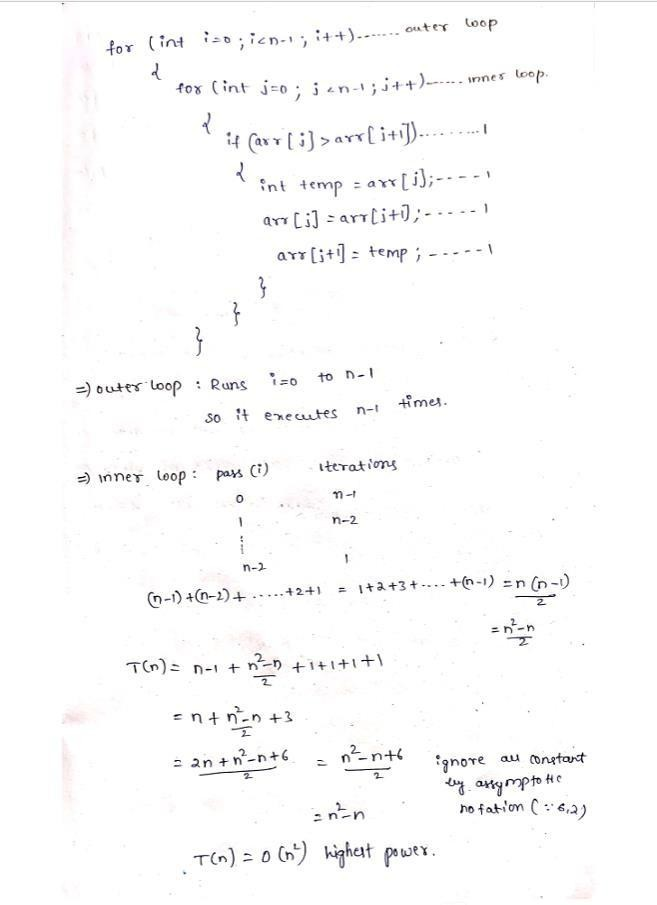 for (int i=0 ; i<n-1 ; i++)....... outer loop
{
for (int j=0 ; j<n-1 ; j++)...... inner loop.
{
if (arr[j] > arr[j+1])......... 1
{
int temp = arr[j];----1
arr[j] = arr[j+1];-----1
arr[j+1] = temp ; -----1
}
}
}
=) outer loop : Runs i=0 to n-1
so it executes n-1 times.
=) inner loop : pass (i) iterations
0 n-1
1 n-2
n-2 1
(n-1)+(n-2)+......+2+1 = 1+2+3+....+(n-1) = n(n-1)/2
= n²-n/2
T(n) = n-1 + n²-n/2 +1+1+1+1
= n + n²-n/2 +3
= 2n+n²-n+6/2 = n²-n+6/2 ignore all constant
by assymptotic
notation (∵ 6,2)
= n²-n
T(n) = O(n²) highest power.